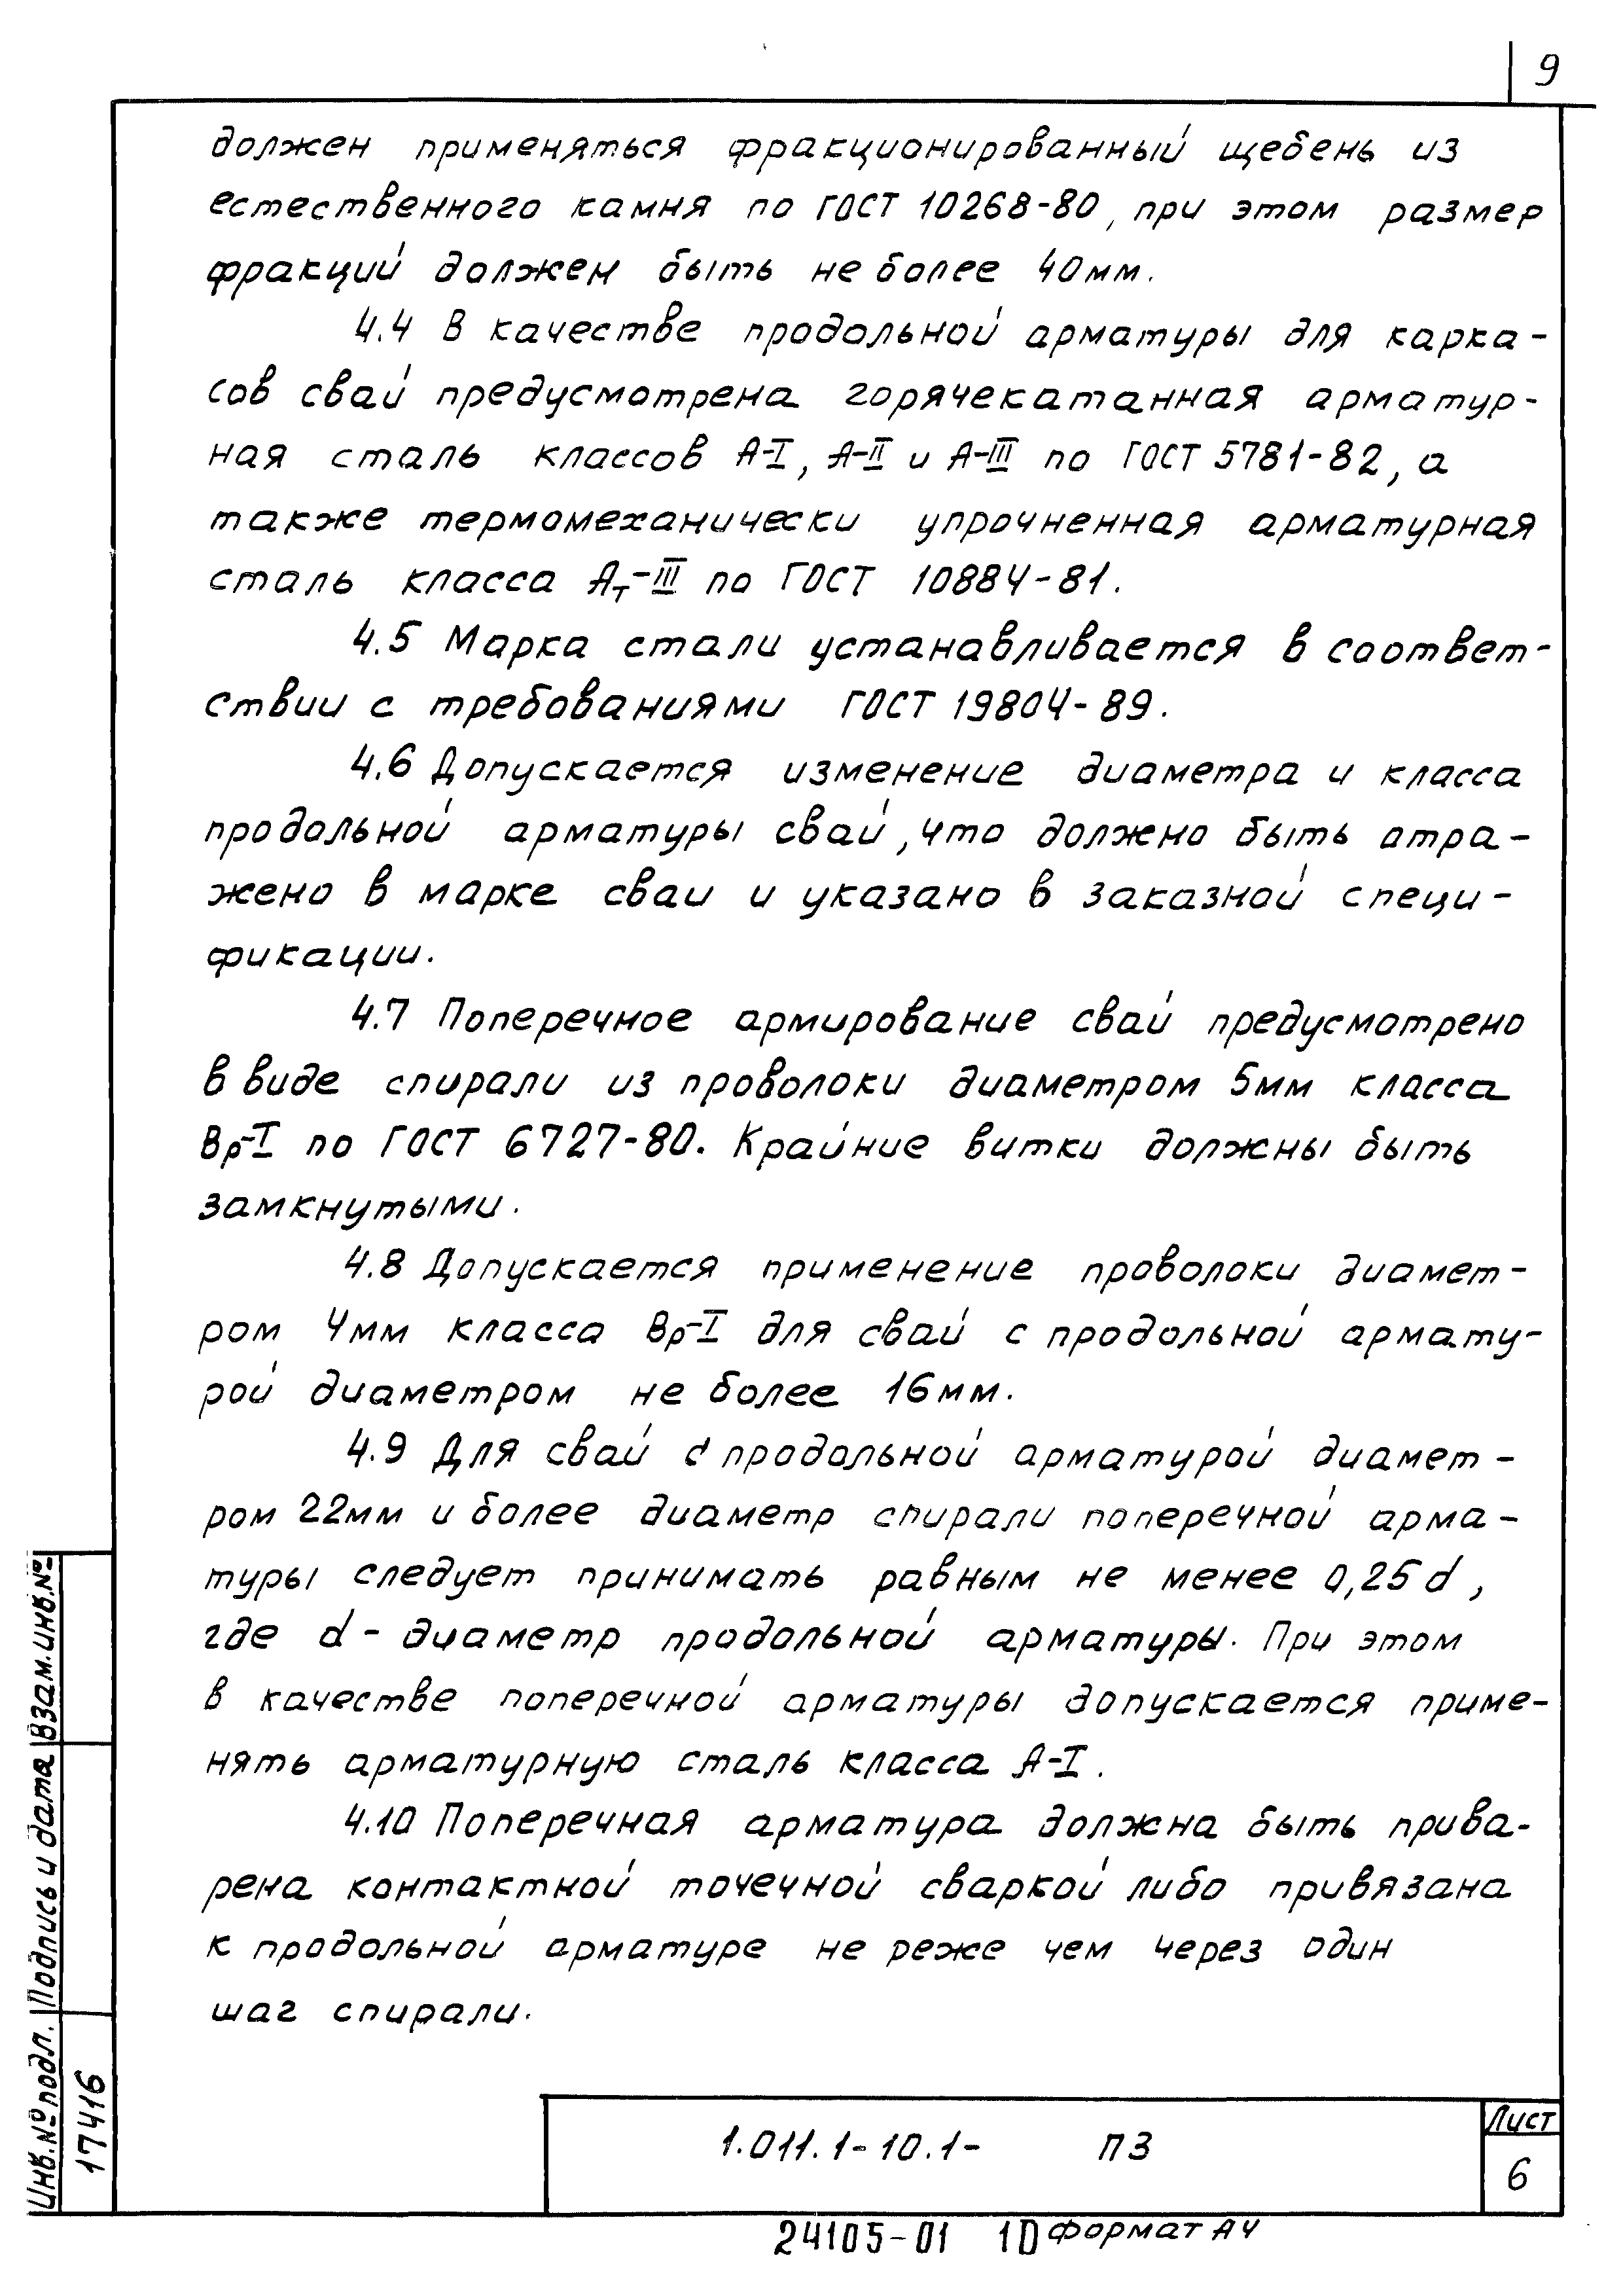 9
должен применяться фракционированный щебень из
естественного камня по ГОСТ 10268-80, при этом размер
фракций должен быть не более 40мм.
4.4 В качестве продольной арматуры для карка-
сов свай предусмотрена горячекатанная арматур-
ная сталь классов А-I, А-II и А-III по ГОСТ 5781-82, а
также термомеханически упрочненная арматурная
сталь класса Ат-III по ГОСТ 10884-81.
4.5 Марка стали устанавливается в соответ-
ствии с требованиями ГОСТ 19804-89.
4.6 Допускается изменение диаметра и класса
продольной арматуры свай, что должно быть отра-
жено в марке сваи и указано в заказной специ-
фикации.
4.7 Поперечное армирование свай предусмотрено
в виде спирали из проволоки диаметром 5мм класса
Вр-I по ГОСТ 6727-80. Крайние витки должны быть
замкнутыми.
4.8 Допускается применение проволоки диамет-
ром 4мм класса Вр-I для свай с продольной армату-
рой диаметром не более 16мм.
4.9 Для свай с продольной арматурой диамет-
ром 22мм и более диаметр спирали поперечной арма-
туры следует принимать равным не менее 0,25d,
где d - диаметр продольной арматуры. При этом
в качестве поперечной арматуры допускается приме-
нять арматурную сталь класса А-I.
4.10 Поперечная арматура должна быть прива-
рена контактной точечной сваркой либо привязана
к продольной арматуре не реже чем через один
шаг спирали.
Инв.№подл. Подпись и дата Взам.инв.№
17416
1.011.1-10.1- ПЗ
Лист
6
24105-01 10 Формат А4